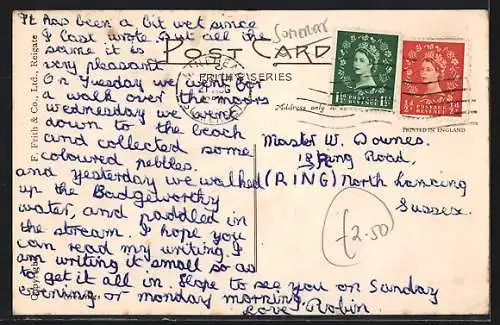 It has been a bit wet since
I last wrote. But all the
same it is
very pleasant
On Tuesday we went for
a walk over the moors
Wednesday we went
down to the beach
and collected some
coloured pebbles.
and yesterday we walked
up the Badgeworthy
water, and paddled in
the stream. I hope you
can read my writing. I
am writing it small so as
to get it all in. Hope to see you on Sunday
evening or monday morning.
love Robin
Somerset
POST CARD
FRITH'S SERIES
Address only
PRINTED IN ENGLAND
F. Frith & Co., Ltd., Reigate
Copyright
1½D POSTAGE REVENUE 1½D
½D POSTAGE REVENUE ½D
Master W. Downes.
Ring Road,
(RING) North Lancing
Sussex.
£2.50